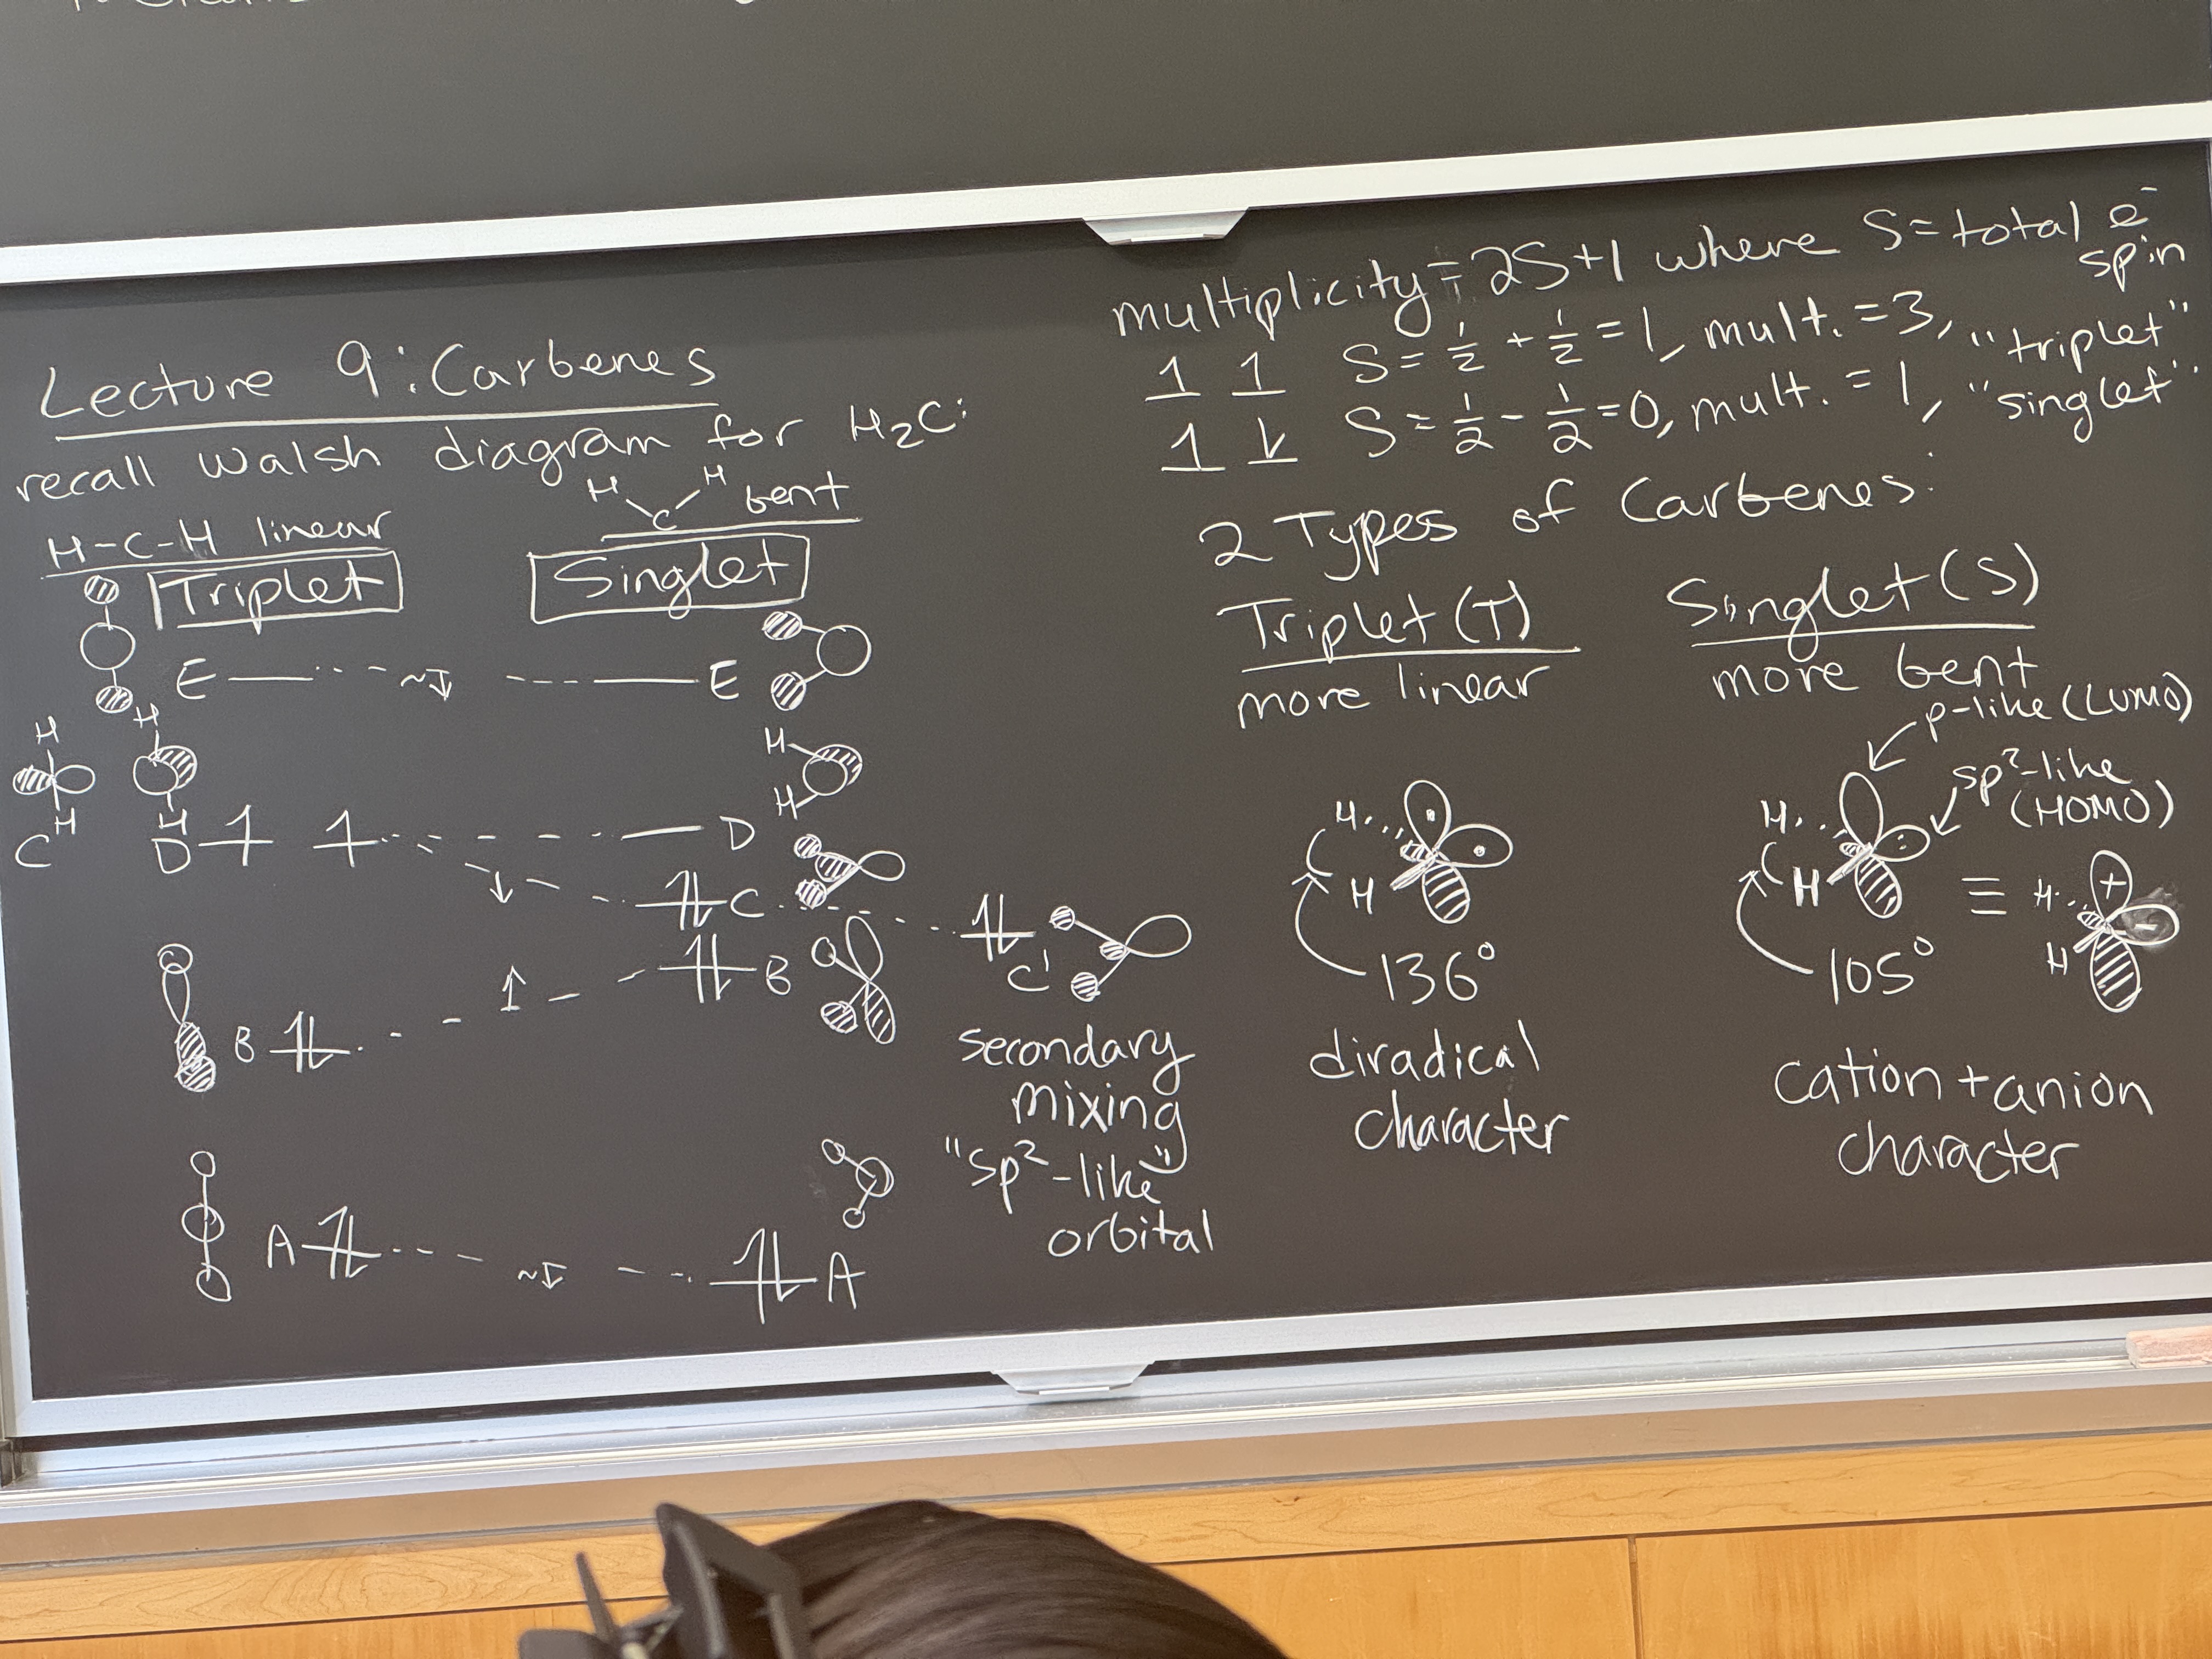 Lecture 9: Carbenes
recall Walsh diagram for H₂C:
H-C-H linear
H H
C bent
Triplet
Singlet
E ~↓ E
H
H
C
H
H
D
H
H
D
↓ C
C'
B ↑ B
A ~↓ A
secondary
mixing
"sp²-like"
orbital
multiplicity = 2S+1 where S = total e⁻
spin
↿ ↿ S = 1/2 + 1/2 = 1, mult. = 3, "triplet"
↿ ⇂ S = 1/2 - 1/2 = 0, mult. = 1, "singlet".
2 Types of Carbenes:
Triplet (T)
more linear
H
H
136°
diradical
character
Singlet (S)
more bent
p-like (LUMO)
sp²-like
(HOMO)
H
H
≡
H
H
+
-
105°
cation + anion
character